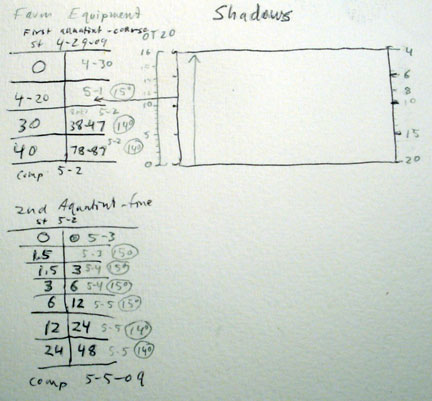 Farm Equipment
Shadows
First aquatint - coarse
st 4-29-09
OT20
0 4-30
4-20 5-1 15°
30 38-47 5-2 14°
40 78-87 5-2 14°
comp 5-2
16
10
5
0
4
6
8
10
15
20
2nd Aquatint - fine
st 5-2
0 0 5-3
1.5 5-3 15°
1.5 3 5-4 15°
3 6 5-4 15°
6 12 5-5 15°
12 24 5-5 14°
24 48 5-5 14°
comp 5-5-09